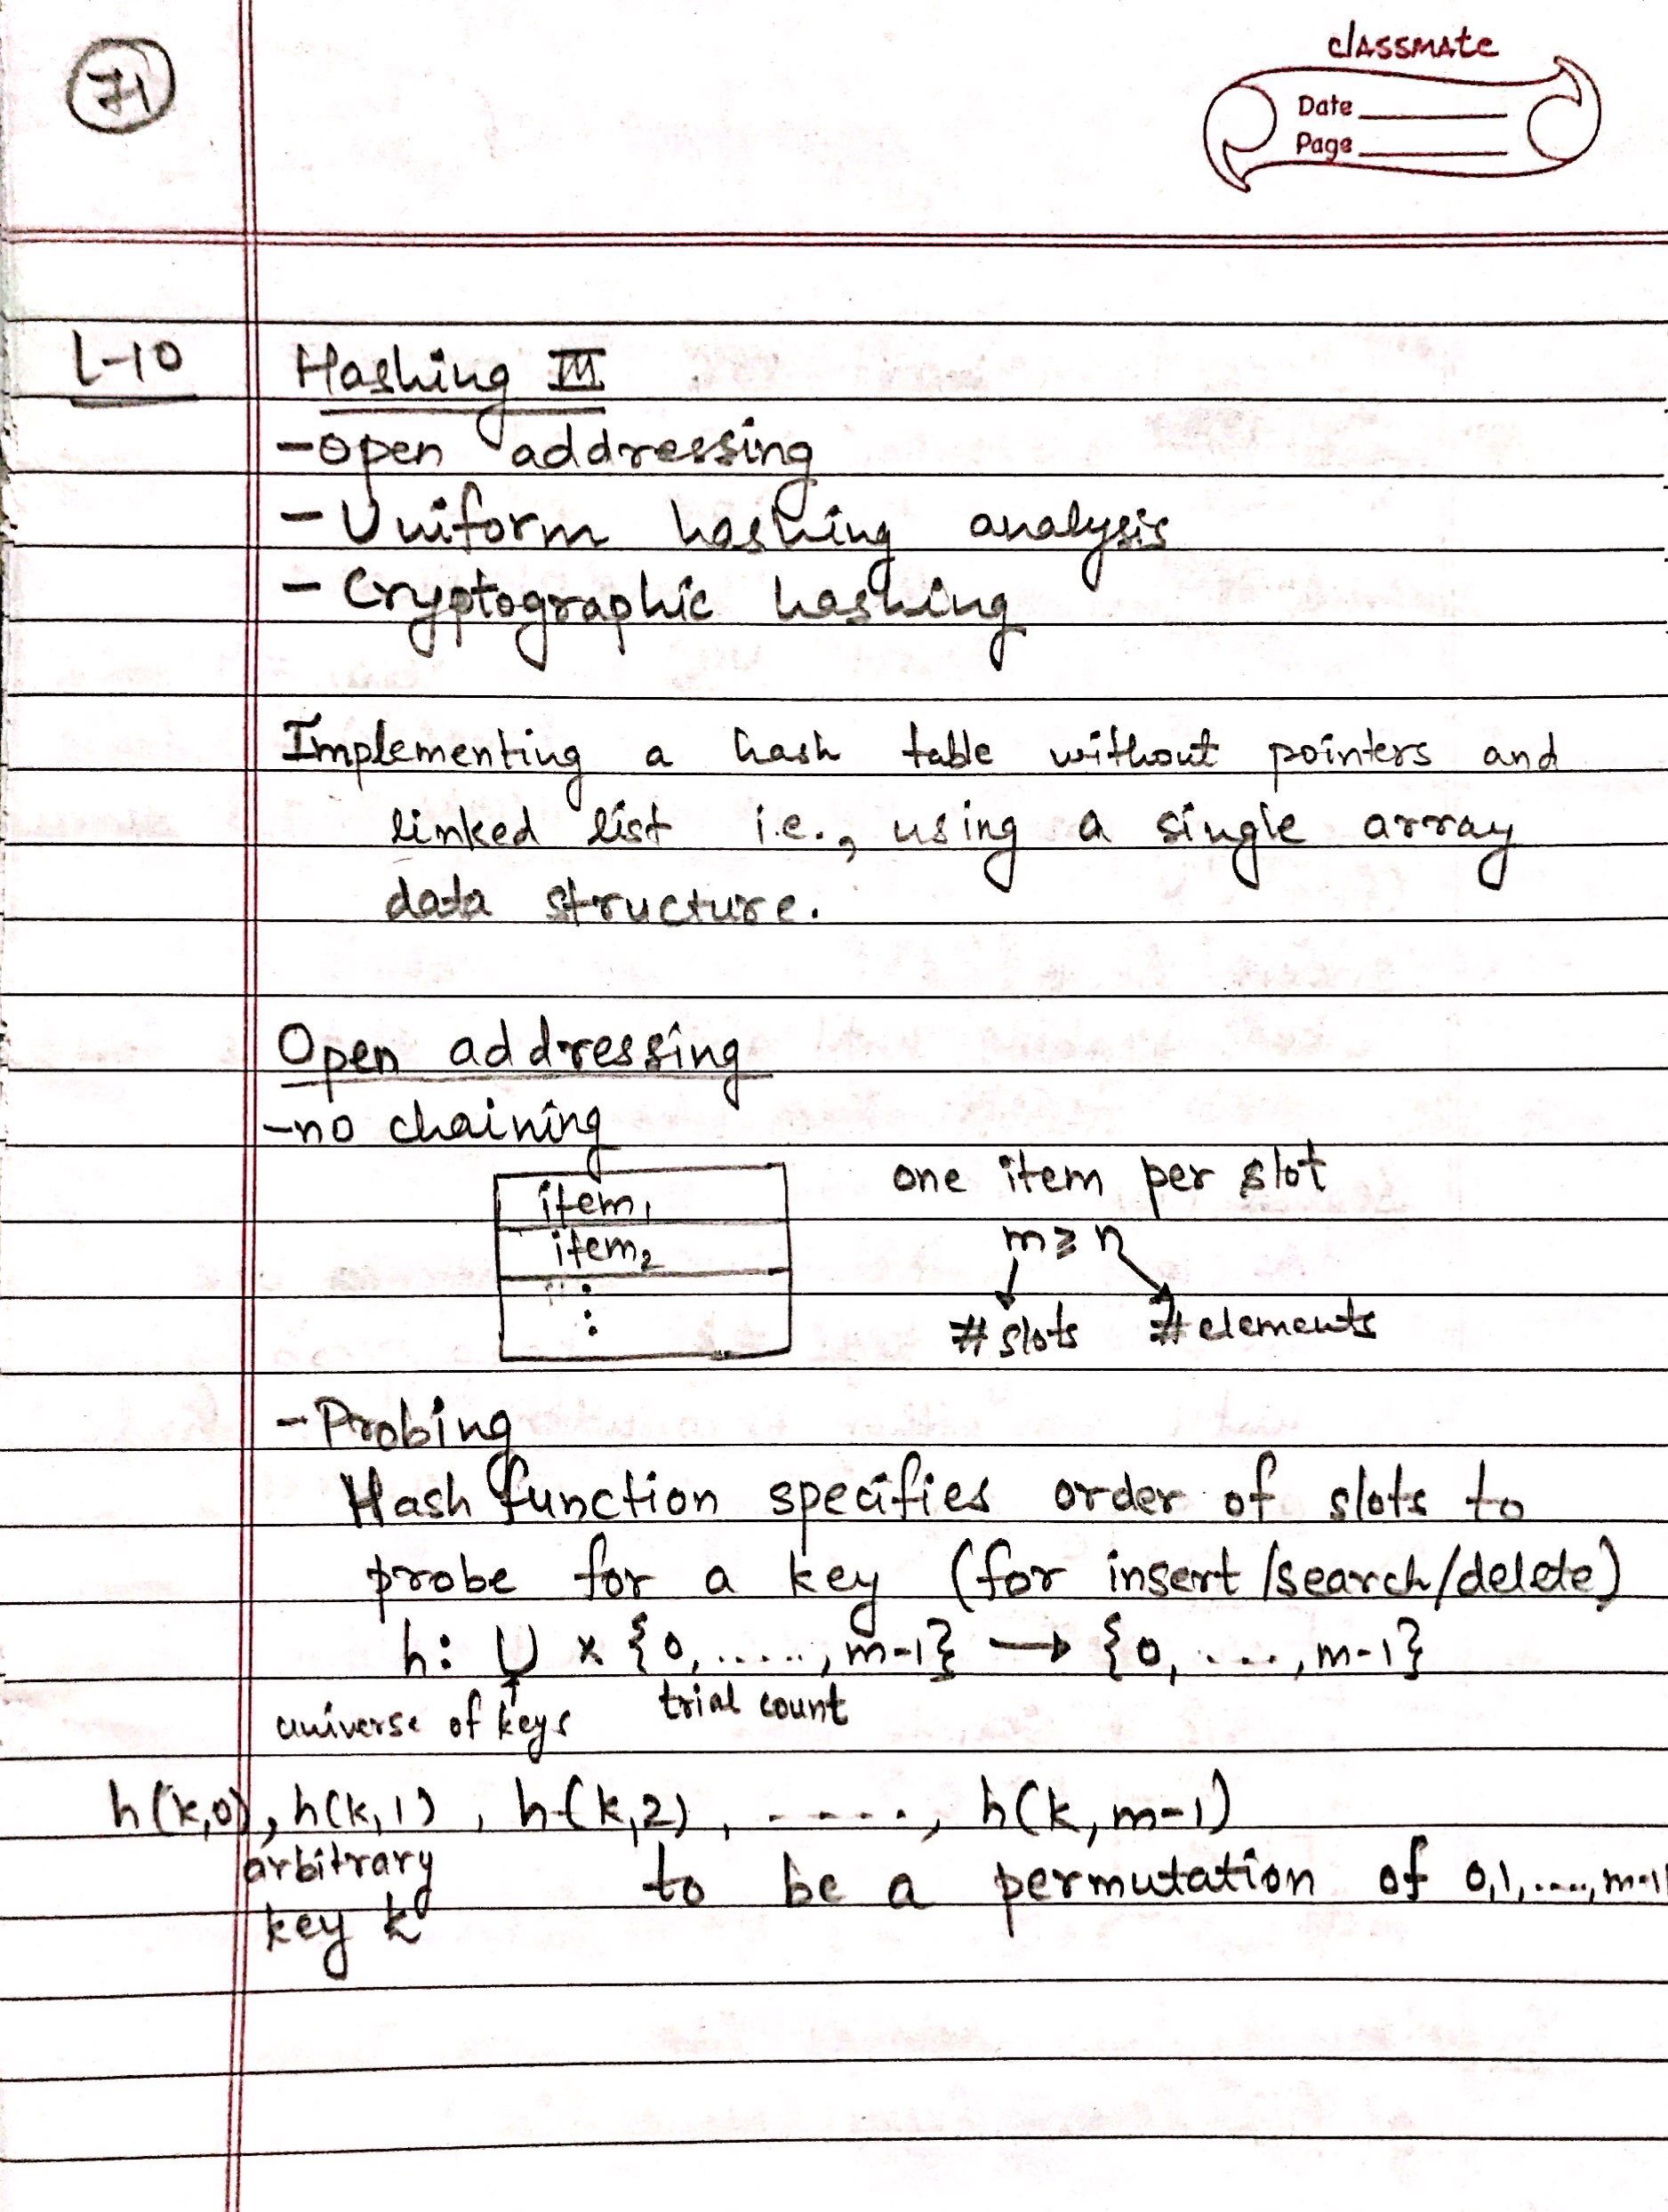 71
classmate
Date
Page
L-10 Hashing III
- Open addressing
- Uniform hashing analysis
- Cryptographic hashing
Implementing a hash table without pointers and
linked list i.e., using a single array
data structure.
Open addressing
- no chaining
item₁ one item per slot
item₂ m ≥ n
# slots # elements
- Probing
Hash function specifies order of slots to
probe for a key (for insert/search/delete)
h: U × {0, ....., m-1} → {0, ...., m-1}
universe of keys trial count
h(k,0), h(k,1), h(k,2), ....., h(k, m-1)
arbitrary to be a permutation of 0,1,....,m-1
key k